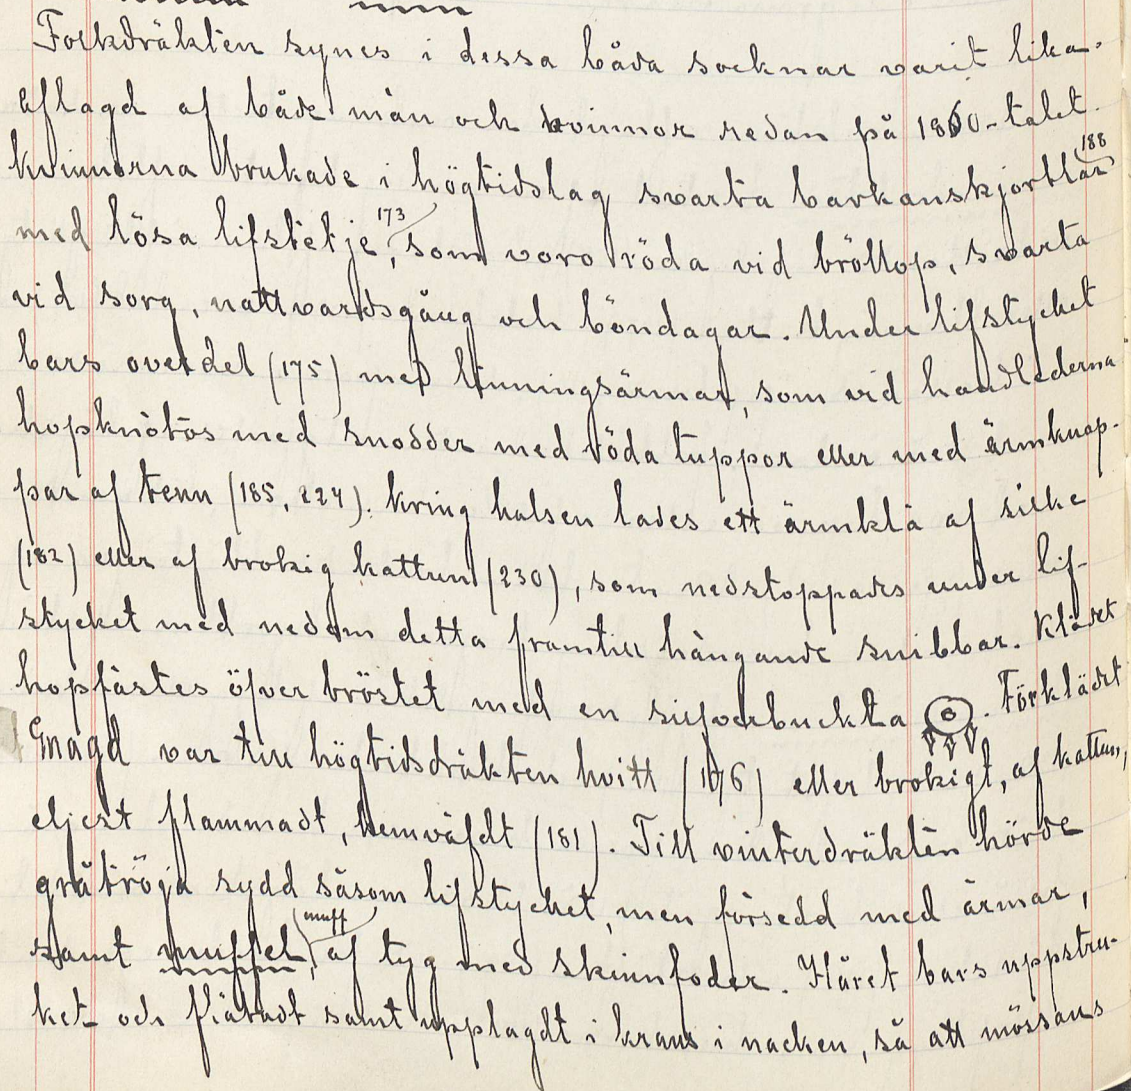 Folkdräkten synes i dessa båda socknar varit lika.
Aflagd af både män och kvinnor redan på 1860-talet.
Kvinnorna brukade i högtidslag svarta barkanskjortlar 188
med lösa lifstetje, 173 som voro röda vid bröllop, svarta
vid sorg, nattvardsgång och böndagar. Under lifstycket
bars overdel (175) med linningsärmar, som vid handlederna
hopknötos med snodder med röda tuppor eller med ärmknap-
par af tenn (185, 224). Kring halsen lades ett ärmklä af silke
(182) eller af brokig kattun (230), som nedstoppades under lif-
stycket med nedom detta framtill hängande snibbar. Klädet
hopfästes öfver bröstet med en silfverbuckla. Förklädet
var till högtidsdräkten hvitt (176) eller brokigt, af kattun,
eljest flammadt, hemväfdt (181). Till vinterdräkten hörde
gråtröja sydd såsom lifstycket, men försedd med ärmar,
samt muffel, (muff) af tyg med skinnfoder. Håret bars uppstru-
ket och flätadt samt upplagdt i krans i nacken, så att mössans